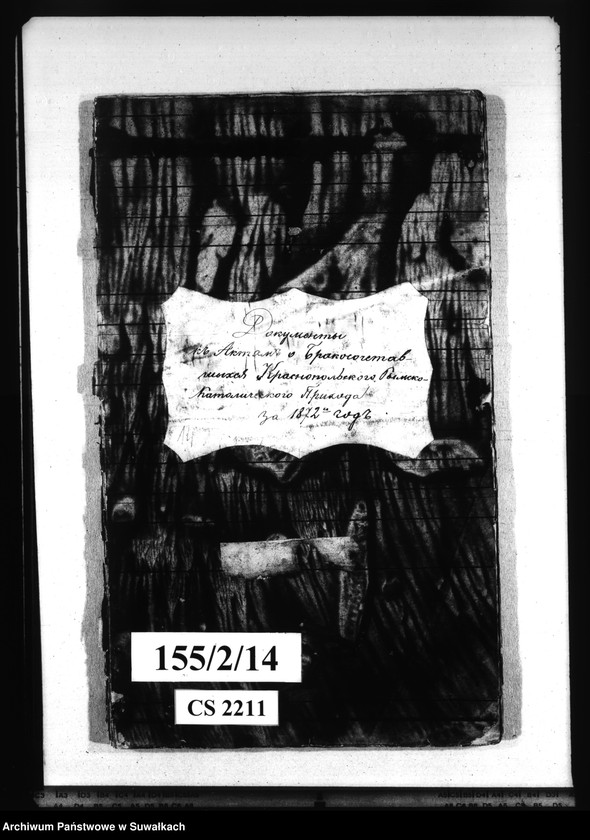 Документы
къ Актамъ о Бракосочетав-
шихся Краснопольскаго Римско-
Католическаго Прихода
за 1872й годъ.
155/2/14
CS 2211
Archiwum Państwowe w Suwałkach